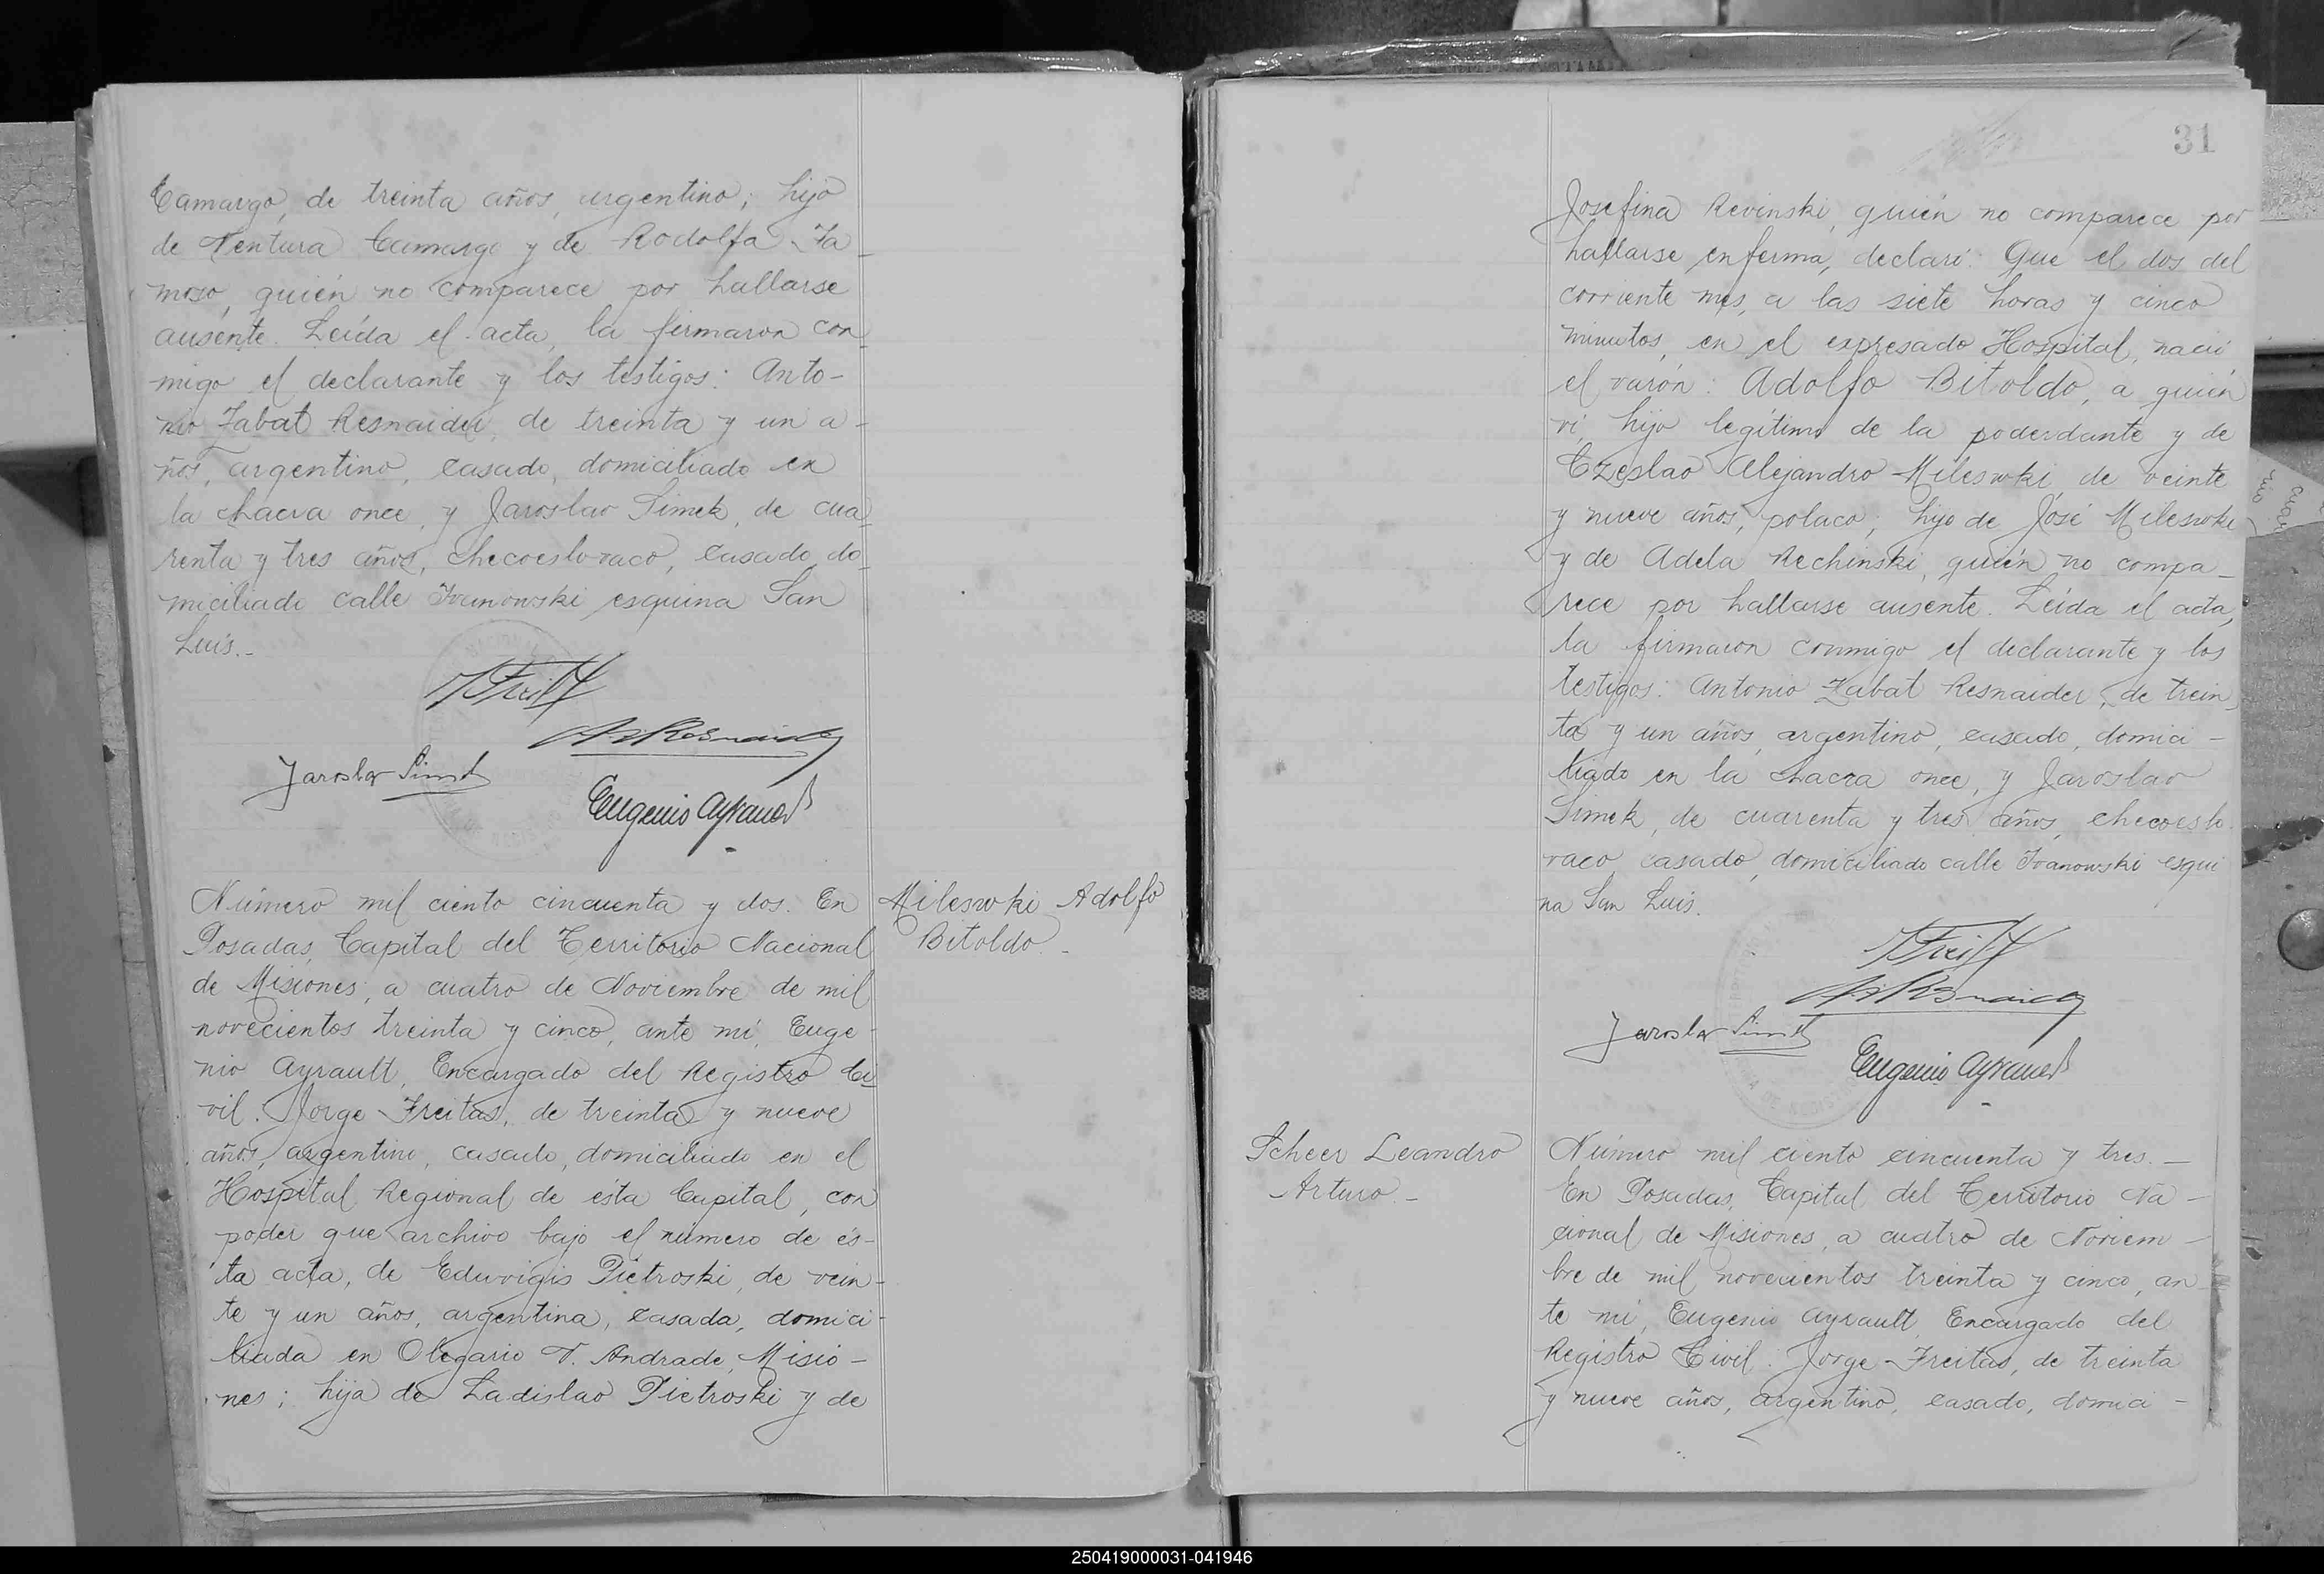 Camargo, de treinta años, argentino; hijo
de Ventura Camargo y de Rodolfa Fa-
moso, quién no comparece por hallarse
ausente. Leída el acta, la firmaron con-
migo el declarante y los testigos: Anto-
nio Zabat Resnaider, de treinta y un a-
ños, argentino, casado, domiciliado en
la chacra once, y Jaroslav Simek, de cua-
renta y tres años, checoeslovaco, casado, do-
miciliado calle Ivanowski esquina San
Luis.-
Jaroslav Simek
Eugenio Ayrault
Número mil ciento cincuenta y dos. En
Posadas, Capital del Territorio Nacional
de Misiones, a cuatro de Noviembre de mil
novecientos treinta y cinco, ante mí, Euge-
nio Ayrault, Encargado del Registro Ci-
vil: Jorge Freitas, de treinta y nueve
años, argentino, casado, domiciliado en el
Hospital Regional de ésta Capital, con
poder que archivo bajo el número de és-
ta acta, de Eduvigis Pietroski, de vein-
te y un años, argentina, casada, domici-
liada en Olegario V. Andrade, Misio-
nes; hija de Ladislao Pietroski y de
Mileswki Adolfo
Bitoldo.-
31
Josefina Revinski, quién no comparece por
hallarse enferma, declaró: Que el dos del
corriente mes, a las siete horas y cinco
minutos, en el expresado Hospital, nació
el varón: Adolfo Bitoldo, a quién
ví, hijo legítimo de la poderdante y de
Czeslao Alejandro Mileswki, de veinte
y nueve años, polaco; hijo de José Mileswki
y de Adela Rechinski, quién no compa-
rece por hallarse ausente. Leída el acta,
la firmaron conmigo el declarante y los
testigos: Antonio Zabat Resnaider, de trein-
ta y un años, argentino, casado, domici-
liado en la chacra once, y Jaroslav
Simek, de cuarenta y tres años, checoeslo-
vaco, casado, domiciliado calle Ivanowski esqui
na San Luis.
Jaroslav Simek
Eugenio Ayrault
Scheer Leandro
Arturo.-
Número mil ciento cincuenta y tres.-
En Posadas, Capital del Territorio Na-
cional de Misiones, a cuatro de Noviem-
bre de mil novecientos treinta y cinco, an-
te mí, Eugenio Ayrault, Encargado del
Registro Civil: Jorge Freitas, de treinta
y nueve años, argentino, casado, domici-
250419000031-041946